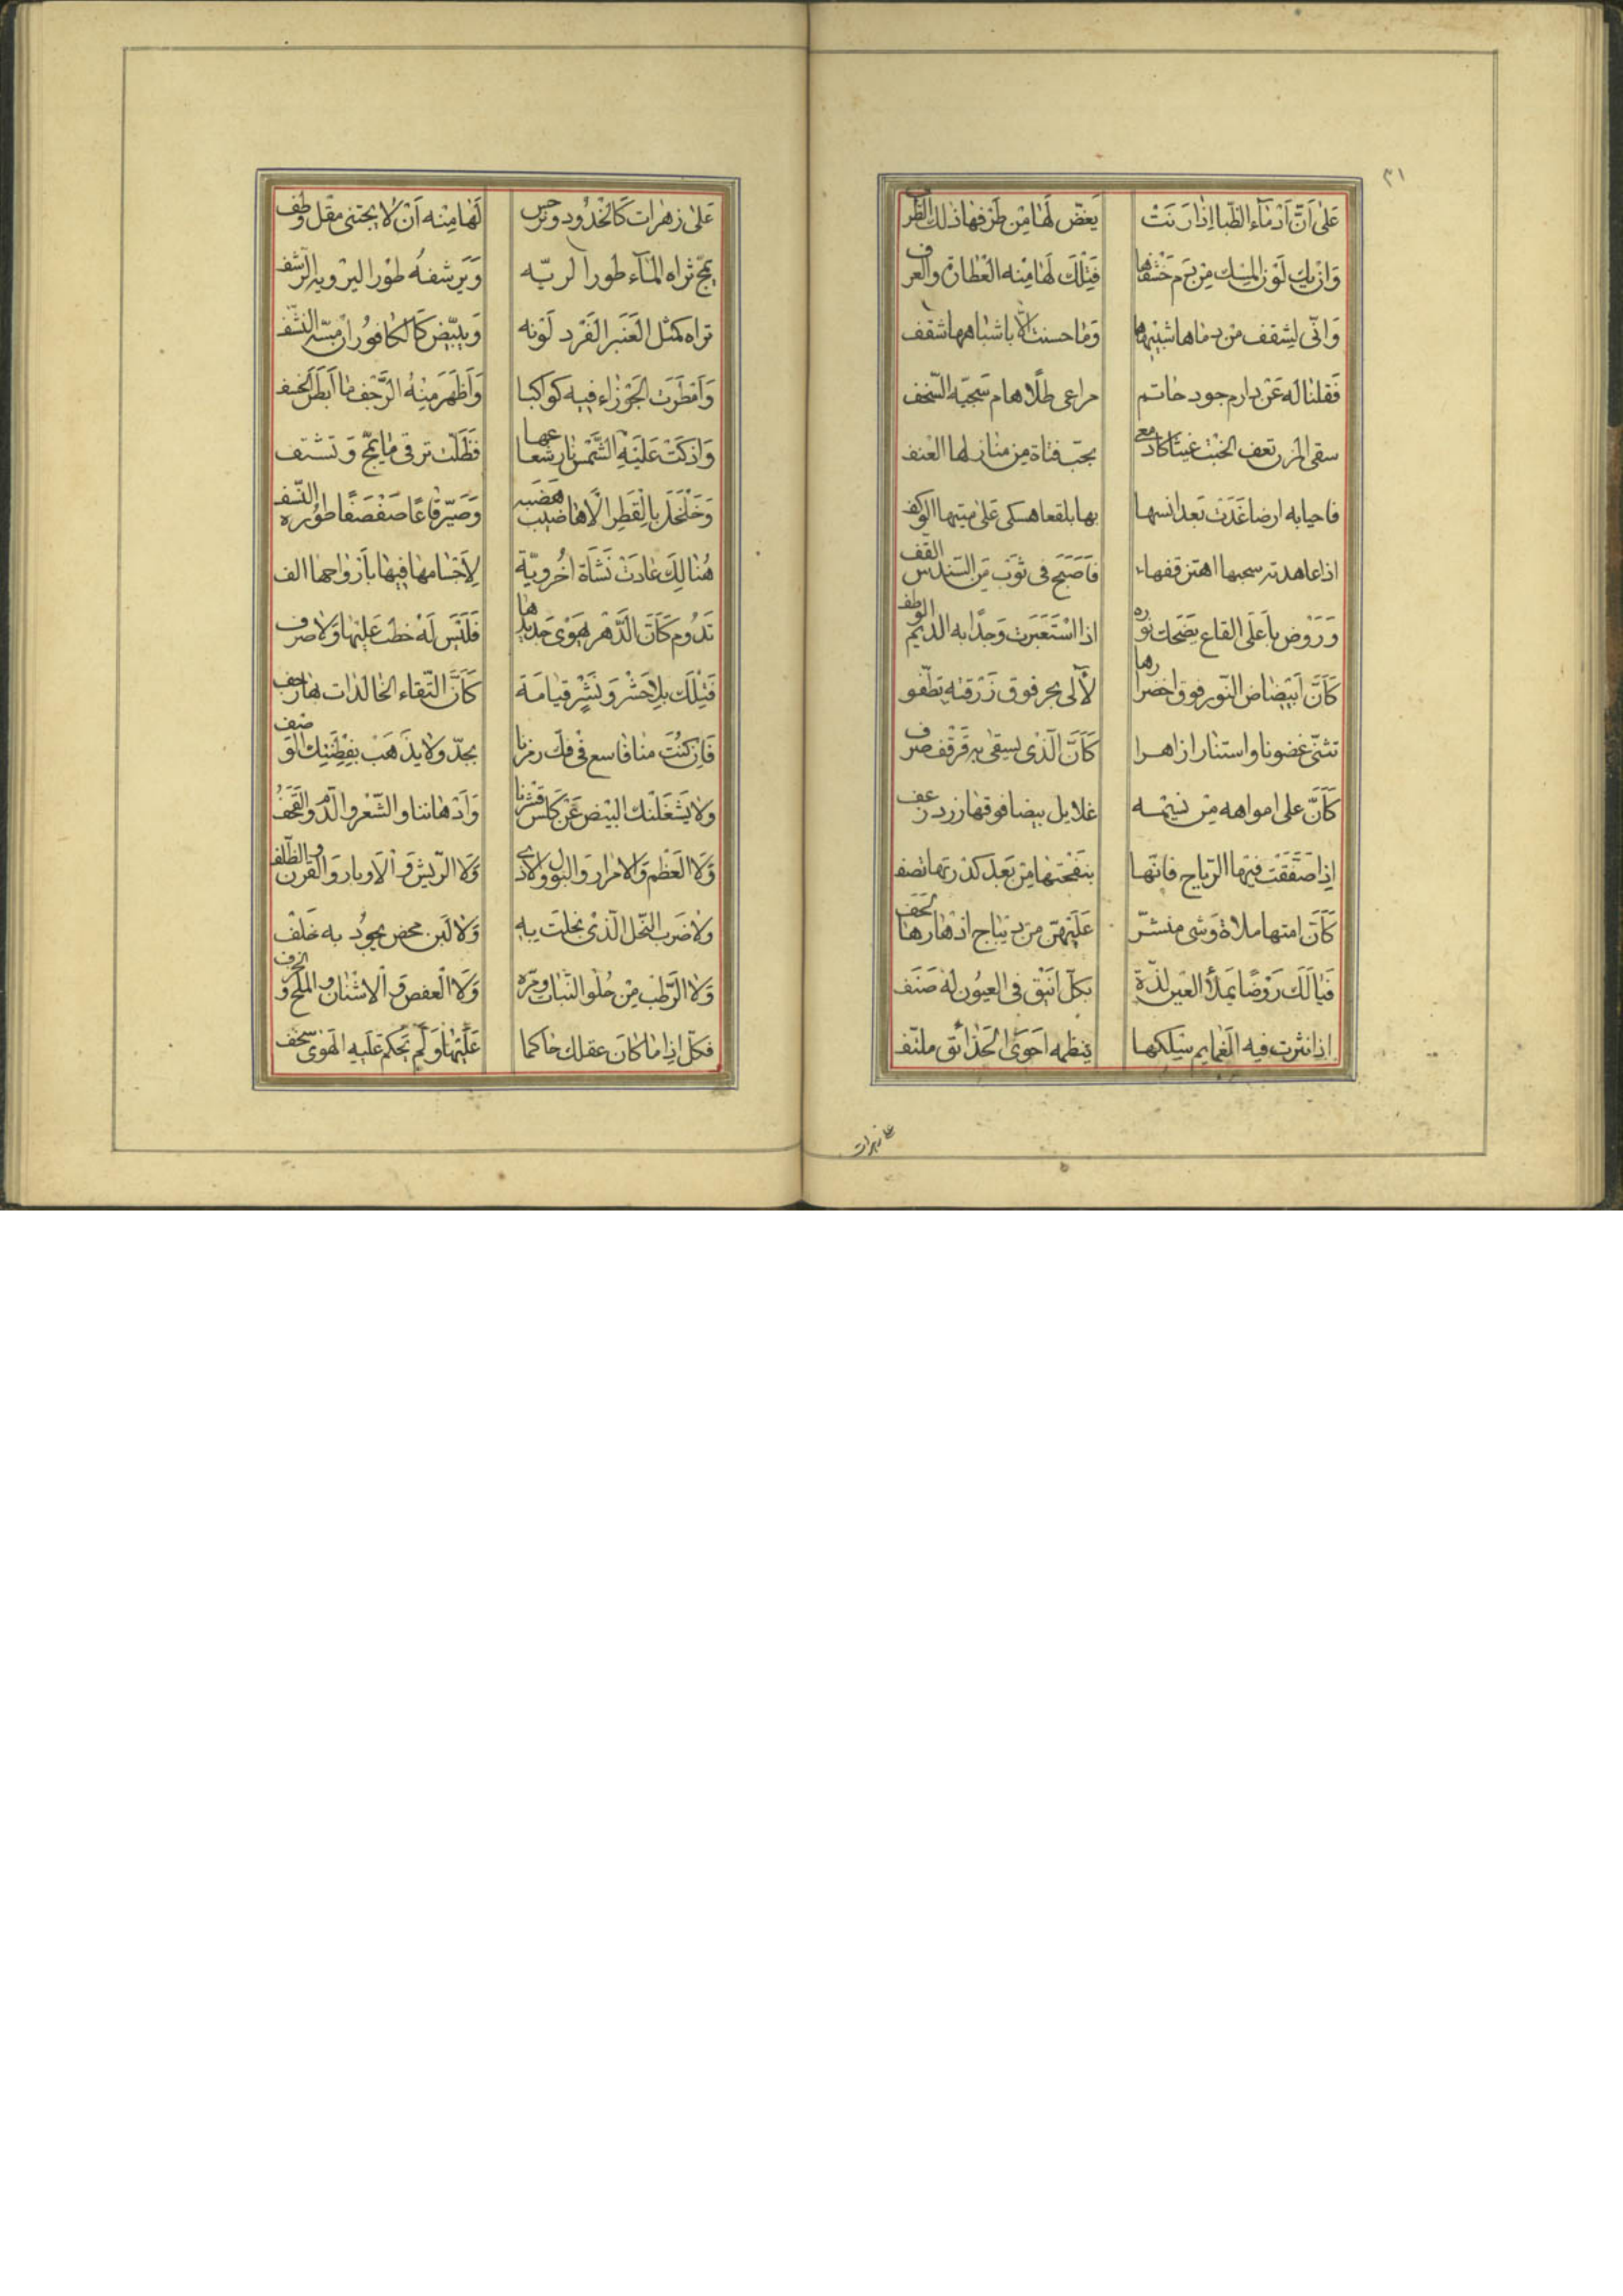 ٣١
عَلىٰ اَنَّ اَدْمٰاءَ الظّبا اِذٰا رَنَتْ يَغضّ لَهٰا مِن طَرْفِهٰا ذلك الطّرف
وَاِنْ يك لَوْن المِسْك مِنْ دَم خَشفهٰا فَتِلْكَ لَهٰا مِنْه العُطارَة والعرف
وَانّى ليشقف من دماها شبيهها وَمٰا حسنت الّا باشباهها شقف
فَقلنا له عَنْ دارم جود حٰاتم مراعى طلّا هام سَجيّه السّخف
سقى المزن تعف الخبْت غيثا كادمعى بجنب فتاة من منازلها العنف
فاحيا به ارضا غَدَت بَعد انسها بها بلقعا هسكى عَلىٰ ميتها الوكف
اذا عاهدته سحبها اهتز قفها فَاَصبَح فى ثَوب مِن السّندس القف
وَرَوْض بأَعلى القاع يضحك نوره اذا اسْتَعبَرت وَجدًا به الديم الوطف
كَاَنّ اَبيضاض النّور فوق اخضرارها لآلى بحر فوق زَرقته تطفو
تثنّى غصونا واستنار ازاهرا كَاَنّ الّذى يسقى به قَرقف صرف
كَاَنّ على امواهه مِن نسيمه غلايل بيضا فوقها زرد زعف
اِذا صَفَقَت فيها الرّياح فانّها بنفحتها مِن بَعد كدرتها تصفو
كَاَنّ امتها ملاة وَشى منشّر عَلَيهنّ من ديباج ازهارها لحف
فَيٰا لَك رَوْضًا يَملأ العين لذّة بكلّ انيق فى العيُون له صَنَف
اذا نثرت فيه الغمايم سِلكها ينظمه احوَى الحَدٰائق ملتف
على زهرات
عَلىٰ زهرات كَالخدُود ونرجس لَهٰا مِنْه اَنْ لا يجتنى مقل وطف
يمجّ ثراه المٰاء طورا لريّه وَيَرشفهُ طوْرا ليرويه الرّشف
تراه كمثل العَنبر الفَرْد لَوْنه وَيبيّض كَالكافور ان مسّه النشف
وَامطَرَت الجَوْزاء فيه كواكبا وَاَظهَرَ مِنْهُ الرّجف مٰا اَبطَن الخسف
وَاذكَتْ عَلَيْهِ الشّمْس نٰار شعاعها فَظَلّت ترقى مٰا يمجّ وَتشتف
وَخَلْخَل بالقَطر الا هاضيب هَضَبه وَصَيّر قٰاعًا صَفصَفًا طَوْره النّسف
هُنٰالِكَ عٰادَتْ نَشأَة اُخرَويّة لِاَجسٰامهٰا فيهٰا بأَرْوٰاحهٰا الف
تَدُوم كَاَنّ الدّهْر يهوَى جَديدها فَلَيْسَ لَهُ خطب عَليهٰا وَلا صرف
فَتِلْكَ بِلا حَشْر وَنَشْر قيٰامَة كَاَنّ البّقاء الخٰالدات بهٰا رجف
فَاِن كُنْت منا فاسع فى فكّ رمزنا بجدّ ولا يذهَبْ بفِطنتك الوضف
ولا يَشغلنك البيْض عَنْ كلس قشرنا وَادْهاننا والشّعْر والدّم والقحف
وَلا العَظم وَلا مرار وَالبول ولاذى وَلا الرّيش وَالاوبار وَالقَرْن والظّلف
ولا ضرب النّحل الّذى نحلت به وَلا لَبن محض يجُود به خَلف
وَلا الرّطب مِنْ حُلو النّبات ومرّه وَلا العفص وَالاشنان والملح والخرف
فكلّ اذا مٰا كان عقلك حٰاكما عَلَيْهٰا وَلَم تحكم عَليه الهَوٰى سخف